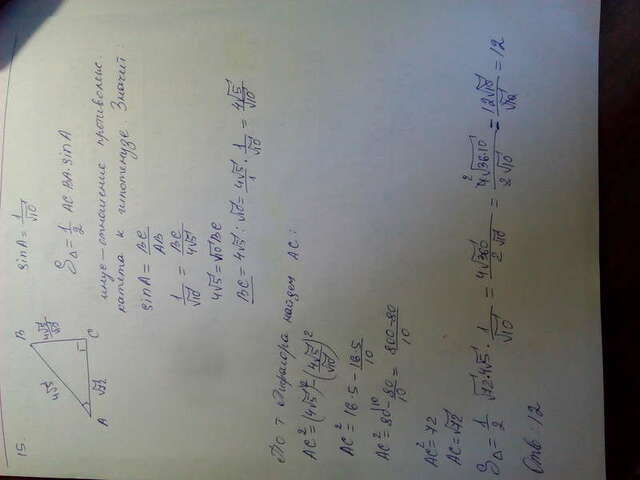 15.
B
4√5
4√5/√10
A
√72
C
sin A = 1/√10
S△ = 1/2 AC·BA·sin A
инус – отношение противолеж.
катета к гипотенузе. Значит:
sin A = BC/AB
1/√10 = BC/4√5
4√5 = √10 BC
BC = 4√5 : √10 = 4√5/1 · 1/√10 = 4√5/√10
По т Пифагора найдем AC:
AC² = (4√5)² − (4√5/√10)²
AC² = 16·5 − 16·5/10
AC² = 80 − 80/10 = 800−80/10
AC² = 72
AC = √72
S△ = 1/2 √72·4√5 · 1/√10 = 4√360/2√10 = 4√36·10/2√10 = 12√10/√10 = 12
Отв: 12